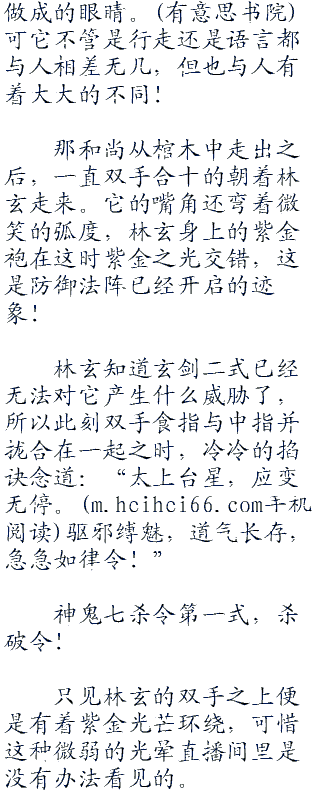 做成的眼睛。(有意思书院)
可它不管是行走还是语言都
与人相差无几，但也与人有
着大大的不同！
那和尚从棺木中走出之
后，一直双手合十的朝着林
玄走来。它的嘴角还弯着微
笑的弧度，林玄身上的紫金
袍在这时紫金之光交错，这
是防御法阵已经开启的迹
象！
林玄知道玄剑二式已经
无法对它产生什么威胁了，
所以此刻双手食指与中指并
拢合在一起之时，冷冷的掐
诀念道：“太上台星，应变
无停。(m.hcihci66.com手机
阅读)驱邪缚魅，道气长存，
急急如律令！”
神鬼七杀令第一式，杀
破令！
只见林玄的双手之上便
是有着紫金光芒环绕，可惜
这种微弱的光晕直播间里是
没有办法看见的。